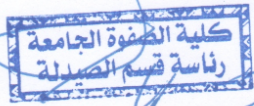 كلية الصفوة الجامعة
رئاسة قسم الصيدلة